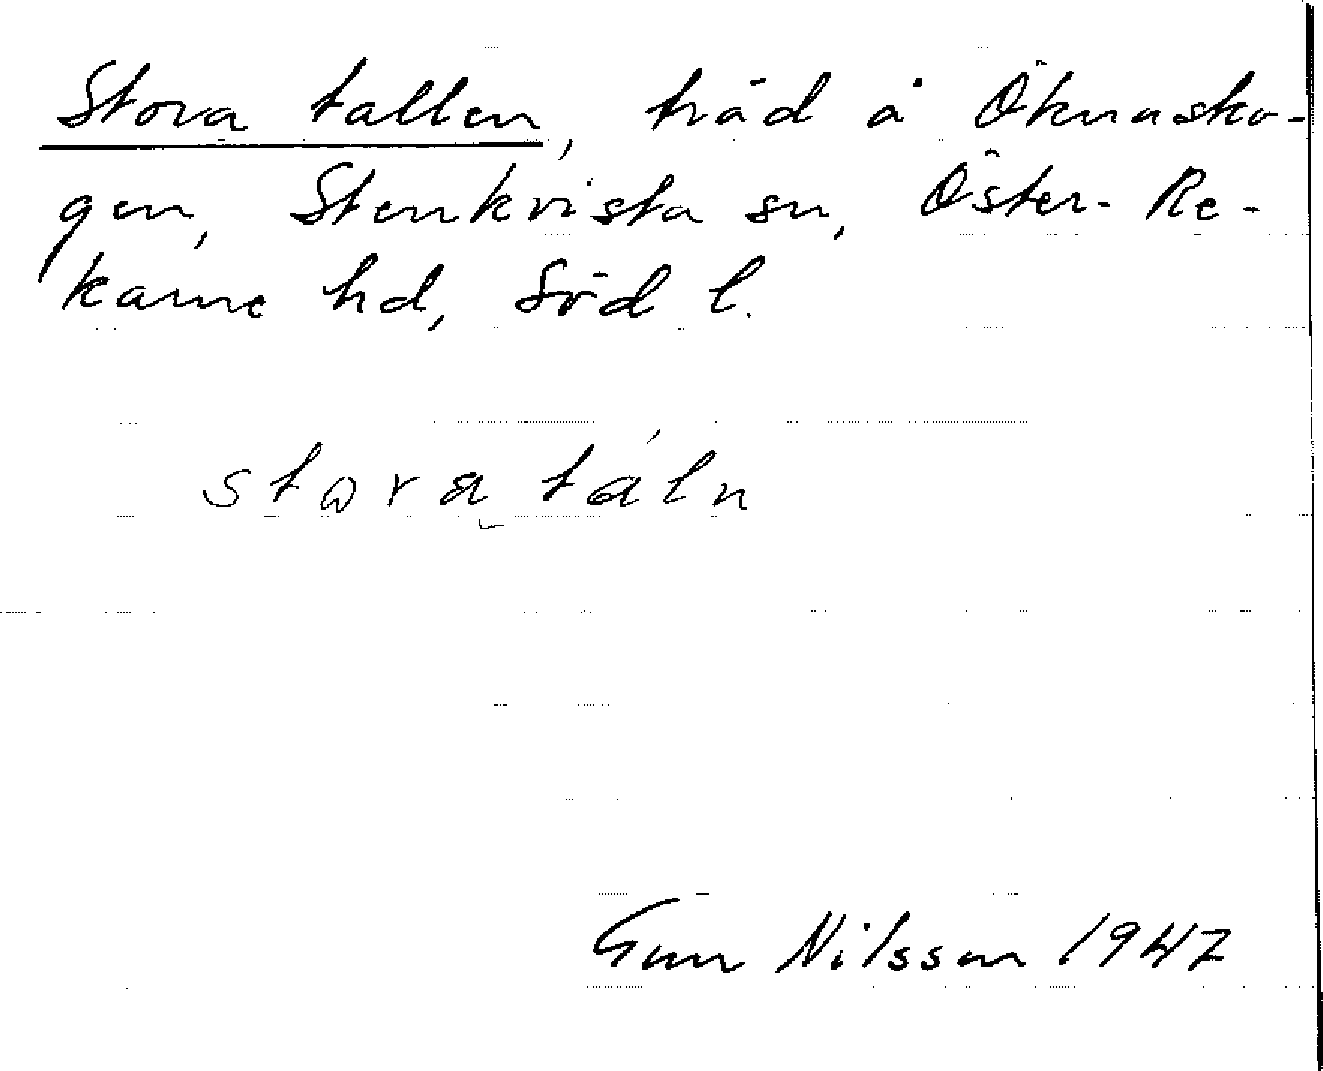 Stora tallen, träd å Öknasko-
gen, Stenkvista sn, Öster-Re-
karne hd, Söd l.
stωra táln
Gun Nilsson 1947